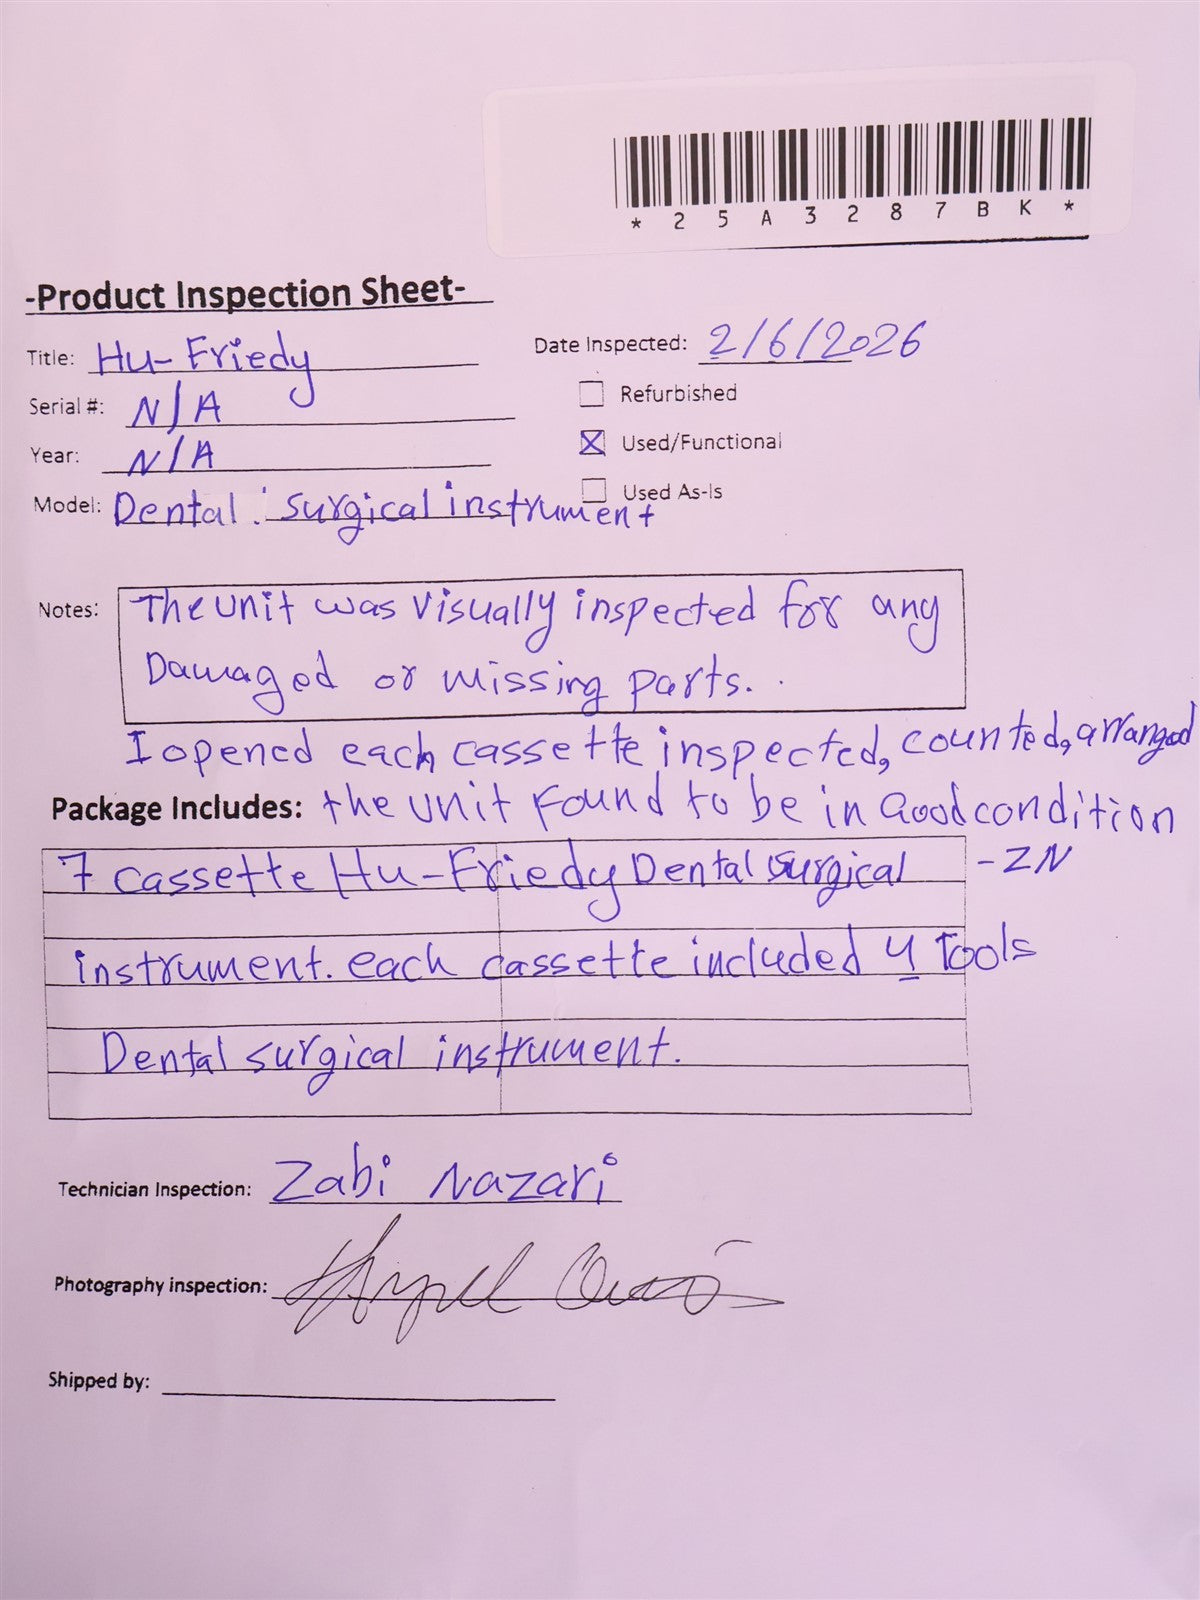 * 2 5 A 3 2 8 7 B K *
-Product Inspection Sheet-
Title: Hu-Friedy
Date Inspected: 2/6/2026
Serial #: N/A
Refurbished
Year: N/A
Used/Functional
Model: Dental surgical instrument
Used As-Is
Notes: The unit was visually inspected for any
Damaged or missing parts.
I opened each cassette inspected, counted, arranged
Package Includes: the unit found to be in Good condition
7 cassette Hu-Friedy Dental surgical -ZN
instrument. each cassette included 4 Tools
Dental surgical instrument.
Technician Inspection: Zabi Nazari
Photography inspection:
Shipped by: